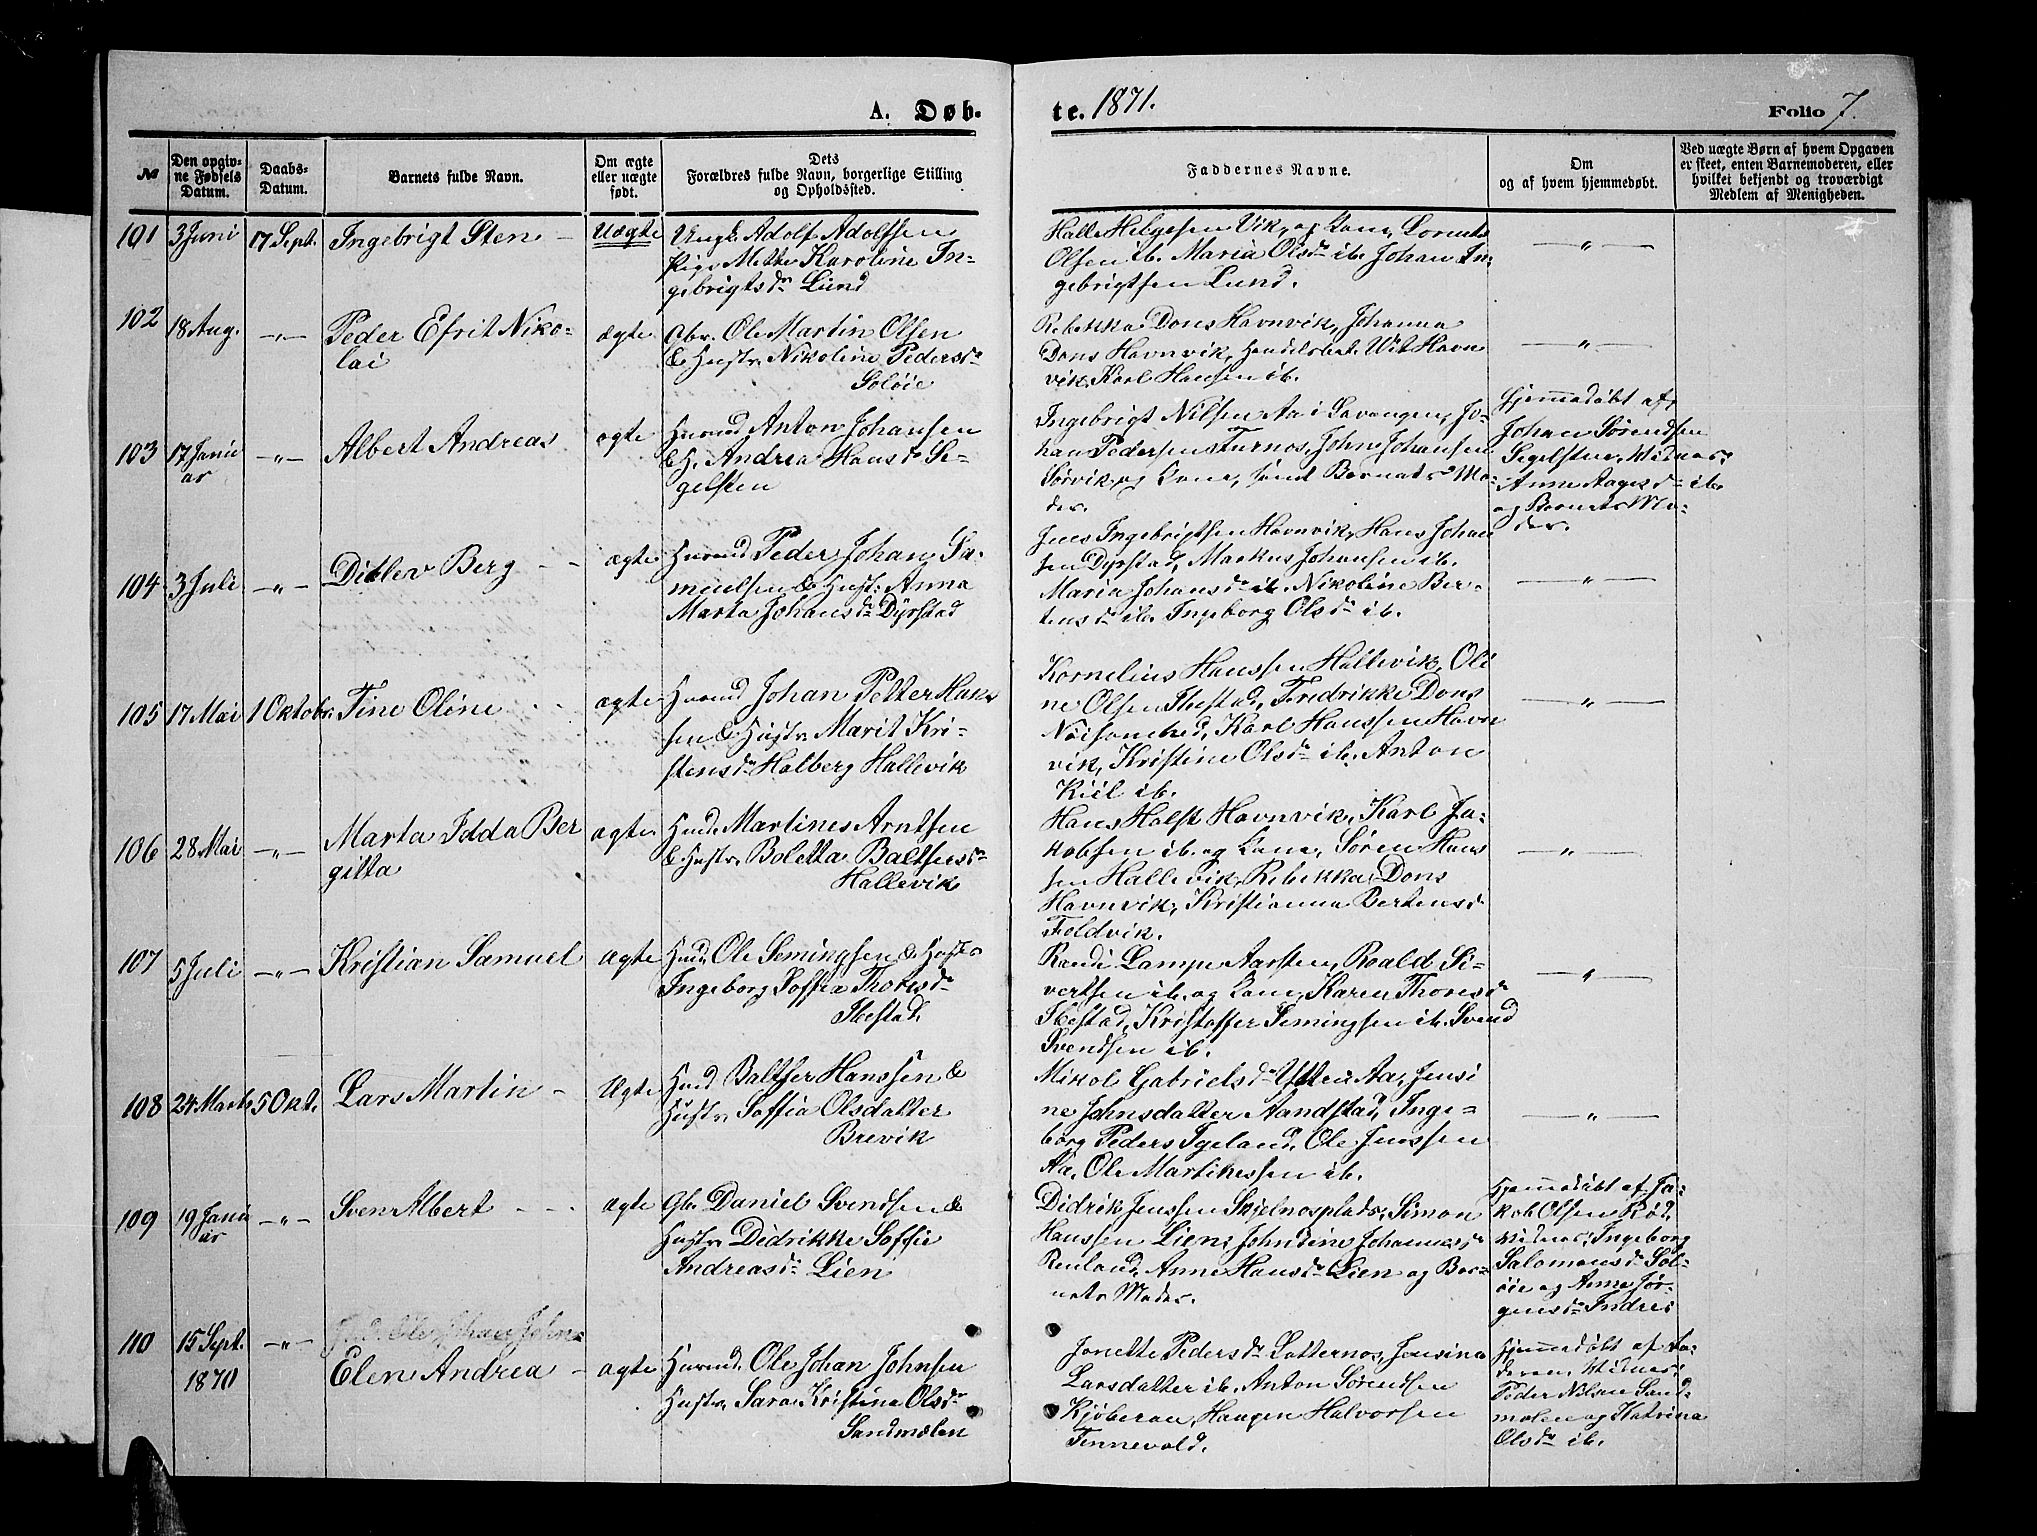 A. Døb.
te. 1871.
Folio 7.
№
Den opgiv-
ne Fødsels
Datum.
Daabs-
Datum.
Barnets fulde Navn.
Om ægte
eller uægte
født.
Dets
Forældres fulde Navn, borgerlige Stilling
og Opholdssted.
Faddernes Navne.
Om
og af hvem hjemmedøbt.
Ved uægte Børn af hvem Opgaven
er skeet, enten Barnemoderen, eller
hvilket bekjendt og troværdigt
Medlem af Menigheden.
101 3 Juni 17 Sept. Ingebrigt Sten - Uægte
Ungk. Adolf Adolfsen
Pige Mette Karoline In-
gebrigtsdr Lund
Halle Helgesen Vik, og Kone, Lorents
Olsen ib. Maria Olsdr ib. Johan In-
gebrigtsen Lund.
— " —
102 18 Aug. —"— Peder Efrit Niko-
lai
ægte
Arb. Ole Martin Olsen
& Hustr. Nikoline Pedersdr
Soløie
Rebekka Dons Havnvik, Johanna
Dons Havnvik, Handelsbet. Wit Havn
vik, Karl Hansen ib.
— " —
103 17 Janu
ar
—"— Albert Andreas ægte
Huusmd Anton Johansen
& H. Andrea Hansdr Se-
gelsten
Ingebrigt Nilsen Aa i Savangen, Jo-
han Pedersen Turnos, John Johansen
Sørvik og Kone, samt Barnets Mo-
der.
Hjemmedøbt af
Johan Sørendsen
Segelsten, Vidner:
Anne Aagesdr ib.
og Barnets Mo-
der.
104 3 Juli —"— Ditlev Berg - - ægte
Huusmd Peder Johan Sa-
muelsen & Hust: Anna
Marta Johansdr Dyrstad
Jens Ingebrigtsen Havnvik, Hans Johan
sen Dyrstad, Markus Johansen ib.
Maria Johansdr ib. Nikoline Ber-
tensdr ib. Ingeborg Olsdr ib.
— " —
105 17 Mai 1 Oktobr. Tine Oline - - ægte
Huusmd Johan Petter Han
sen & Hustr. Marit Kri-
stensdr Holberg Hallevik
Kornelius Hanssen Hallevik, Oli
ne Olsen Ibestad, Fredrikke Dons
Nøisomhed, Karl Hanssen Havn
vik, Kristine Olsdr ib. Anton
Kiil ib.
— " —
106 28 Mai —"— Marta Idda Ber
gitta
ægte
Husmd. Martines Arntsen
& Hustr. Boletta Baltsersdr
Hallevik
Hans Holst Havnvik, Karl Ja-
kobsen ib. og Kone, Søren Hans
sen Hallevik, Rebekka Dons
Havnvik, Kristianna Bertensdr
Foldvik.
— " —
107 5 Juli —"— Kristian Samuel ægte
Husmd. Ole Semingsen & Hustr
Ingeborg Soffia Thoresdr
Ibestad.
Randi Lampe Aarsten, Roald Si-
vertsen ib. og Kone, Karen Thoresdr
Ibestad, Kristoffer Semingsen ib. Svend
Svendsen ib.
— " —
108 24 Marts 5 Okt. Lars Martin - ægte
Husmd Baltser Hanssen &
Hustr. Soffia Olsdatter
Brevik
Mikol Gabrielsdr Ytter Aa, Jensi
ne Johnsdatter Aandstad, Inge-
borg Peders Tgeland, Ole Jenssen
Aa, Ole Martikessen ib.
— " —
109 19 Janu
ar
—"— Sven Albert - - - ægte
Gb. Daniel Svendsen &
Hustr. Didrikke Soffie
Andreasdr Lien
Didrik Jenssen Skjelnosplads, Simon
Hanssen Lien, Johndine Johannesdr
Renland, Anne Hansdr Lien og Bar-
nets Moder.
Hjemmedøbt af Ja-
kob Olsen Rød,
Vidner: Ingeborg
Salomonsdr Sol-
øie og Anne Jør-
gensdr Indres
110 15 Sept.
1870
—"— Elen Andrea - ægte
Huusmd. Ole Johan Johnsen
Hustr. Sara Kristina Olsdr
Sandmælen
Jonette Pedersdr Lotternos, Jonsina
Larsdatter ib. Anton Sørendsen
Kjøberau, Haagen Halvorsen
Tennevold.
Hjemmedøbt af Fa-
deren, Vidner:
Peder Nilsen Sand-
mælen og Katrina
Olsdr ib.